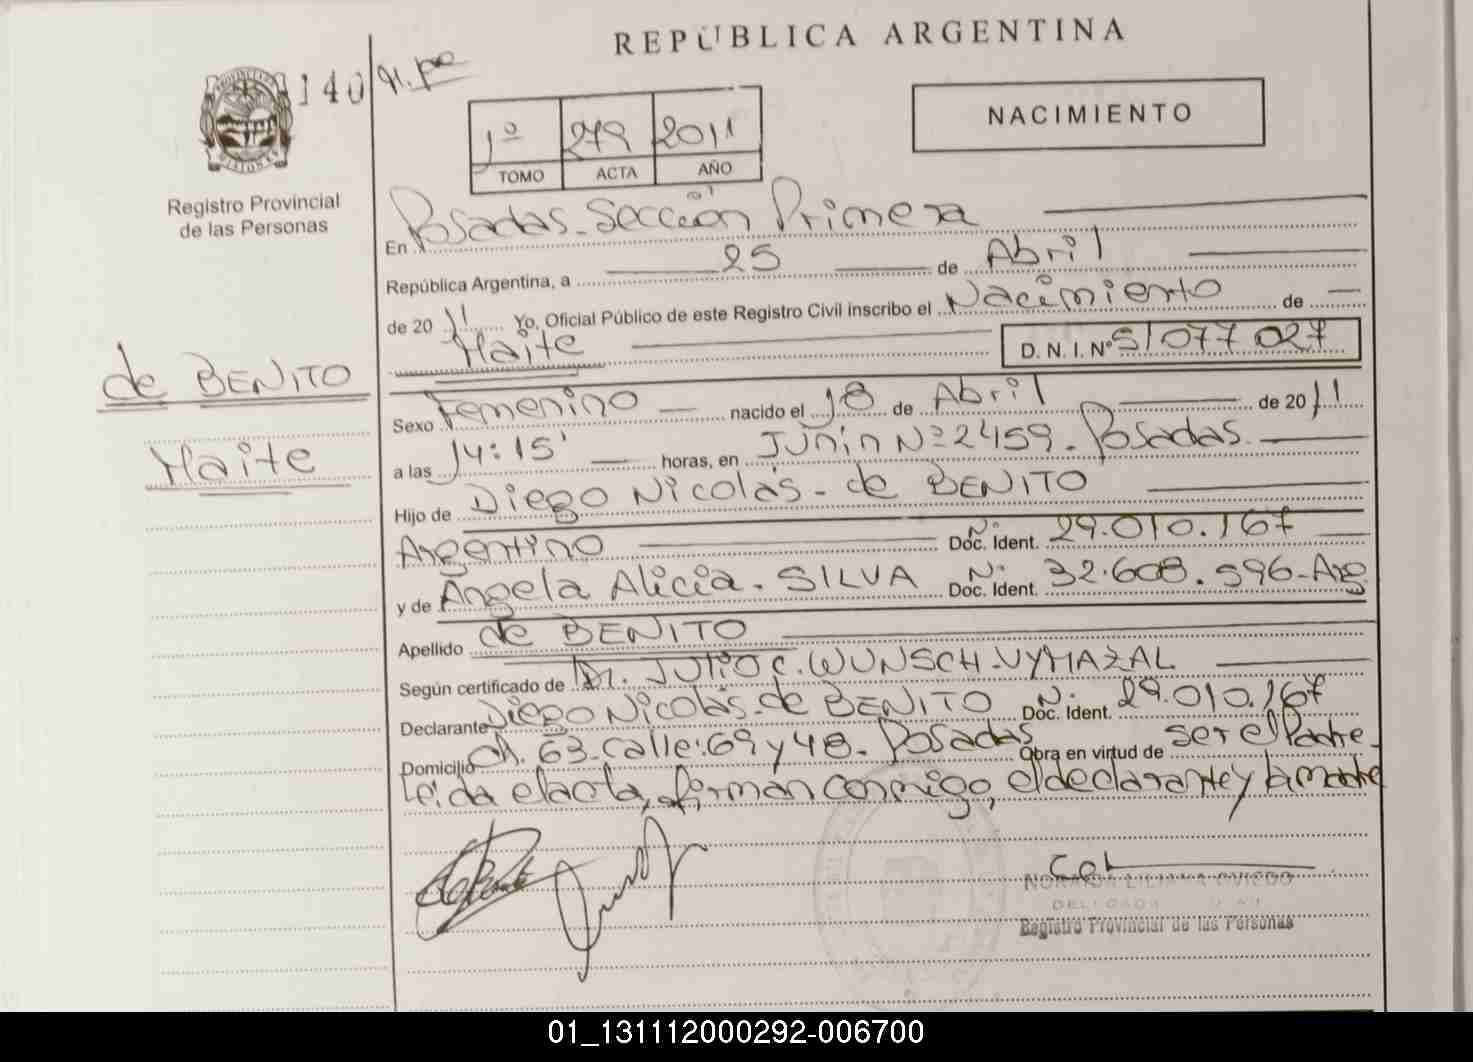 REPÚBLICA ARGENTINA
140
1º 279 2011
TOMO ACTA AÑO
NACIMIENTO
Registro Provincial
de las Personas
En Posadas - Sección Primera
República Argentina, a 25 de Abril
de 20 11 Yo, Oficial Público de este Registro Civil inscribo el Nacimiento de
Haite D. N. I. Nº 51 077 027
de BENITO
Haite
Sexo Femenino nacido el 18 de Abril de 20 11
a las 14:15' horas, en Junin Nº 2459 - Posadas
Hijo de Diego Nicolás - de BENITO
Argentino Doc. Ident. Nº 29.010.167
y de Angela Alicia - SILVA Doc. Ident. Nº 32.608.596 - Arg
Apellido de BENITO
Según certificado de Dr. JULIO C. WUNSCH - VYMAZAL
Declarante Diego Nicolás - de BENITO Doc. Ident. Nº 29.010.167
Domicilio Ch. 63 - calle: 69 y 48 - Posadas Obra en virtud de ser el Padre -
Leida el acta, firman conmigo, el declarante y la madre
NORAIDA LILIANA OVIEDO
DELEGADA
Registro Provincial de las Personas
01_131112000292-006700